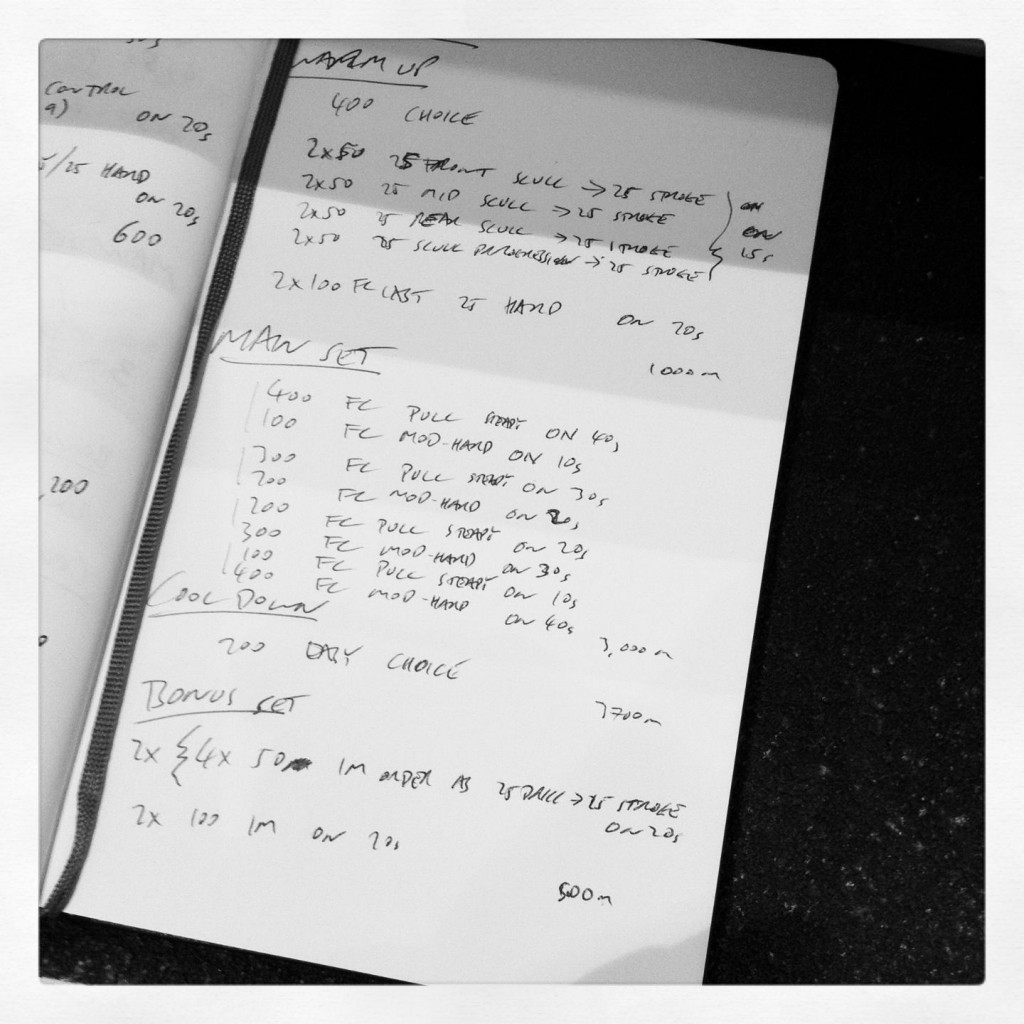 CONTROL
ON 20s
/25 HARD
ON 20s
600
,200
WARM UP
400 CHOICE
2x50 25 FRONT SCULL → 25 STROKE
2x50 25 MID SCULL → 25 STROKE
2x50 25 REAR SCULL → 25 STROKE
2x50 25 SCULL PROGRESSION → 25 STROKE
ON 15s
2x100 FC LAST 25 HARD ON 20s
1000m
MAIN SET
400 FC PULL STEADY ON 40s
100 FC MOD-HARD ON 10s
300 FC PULL STEADY ON 30s
200 FC MOD-HARD ON 20s
200 FC PULL STEADY ON 20s
300 FC MOD-HARD ON 30s
100 FC PULL STEADY ON 10s
400 FC MOD-HARD ON 40s
3,000m
COOL DOWN
200 EASY CHOICE
BONUS SET
2x { 4x 50m IM ORDER AS 25 DRILL → 25 STROKE
ON 20s
2x 100 IM ON 20s